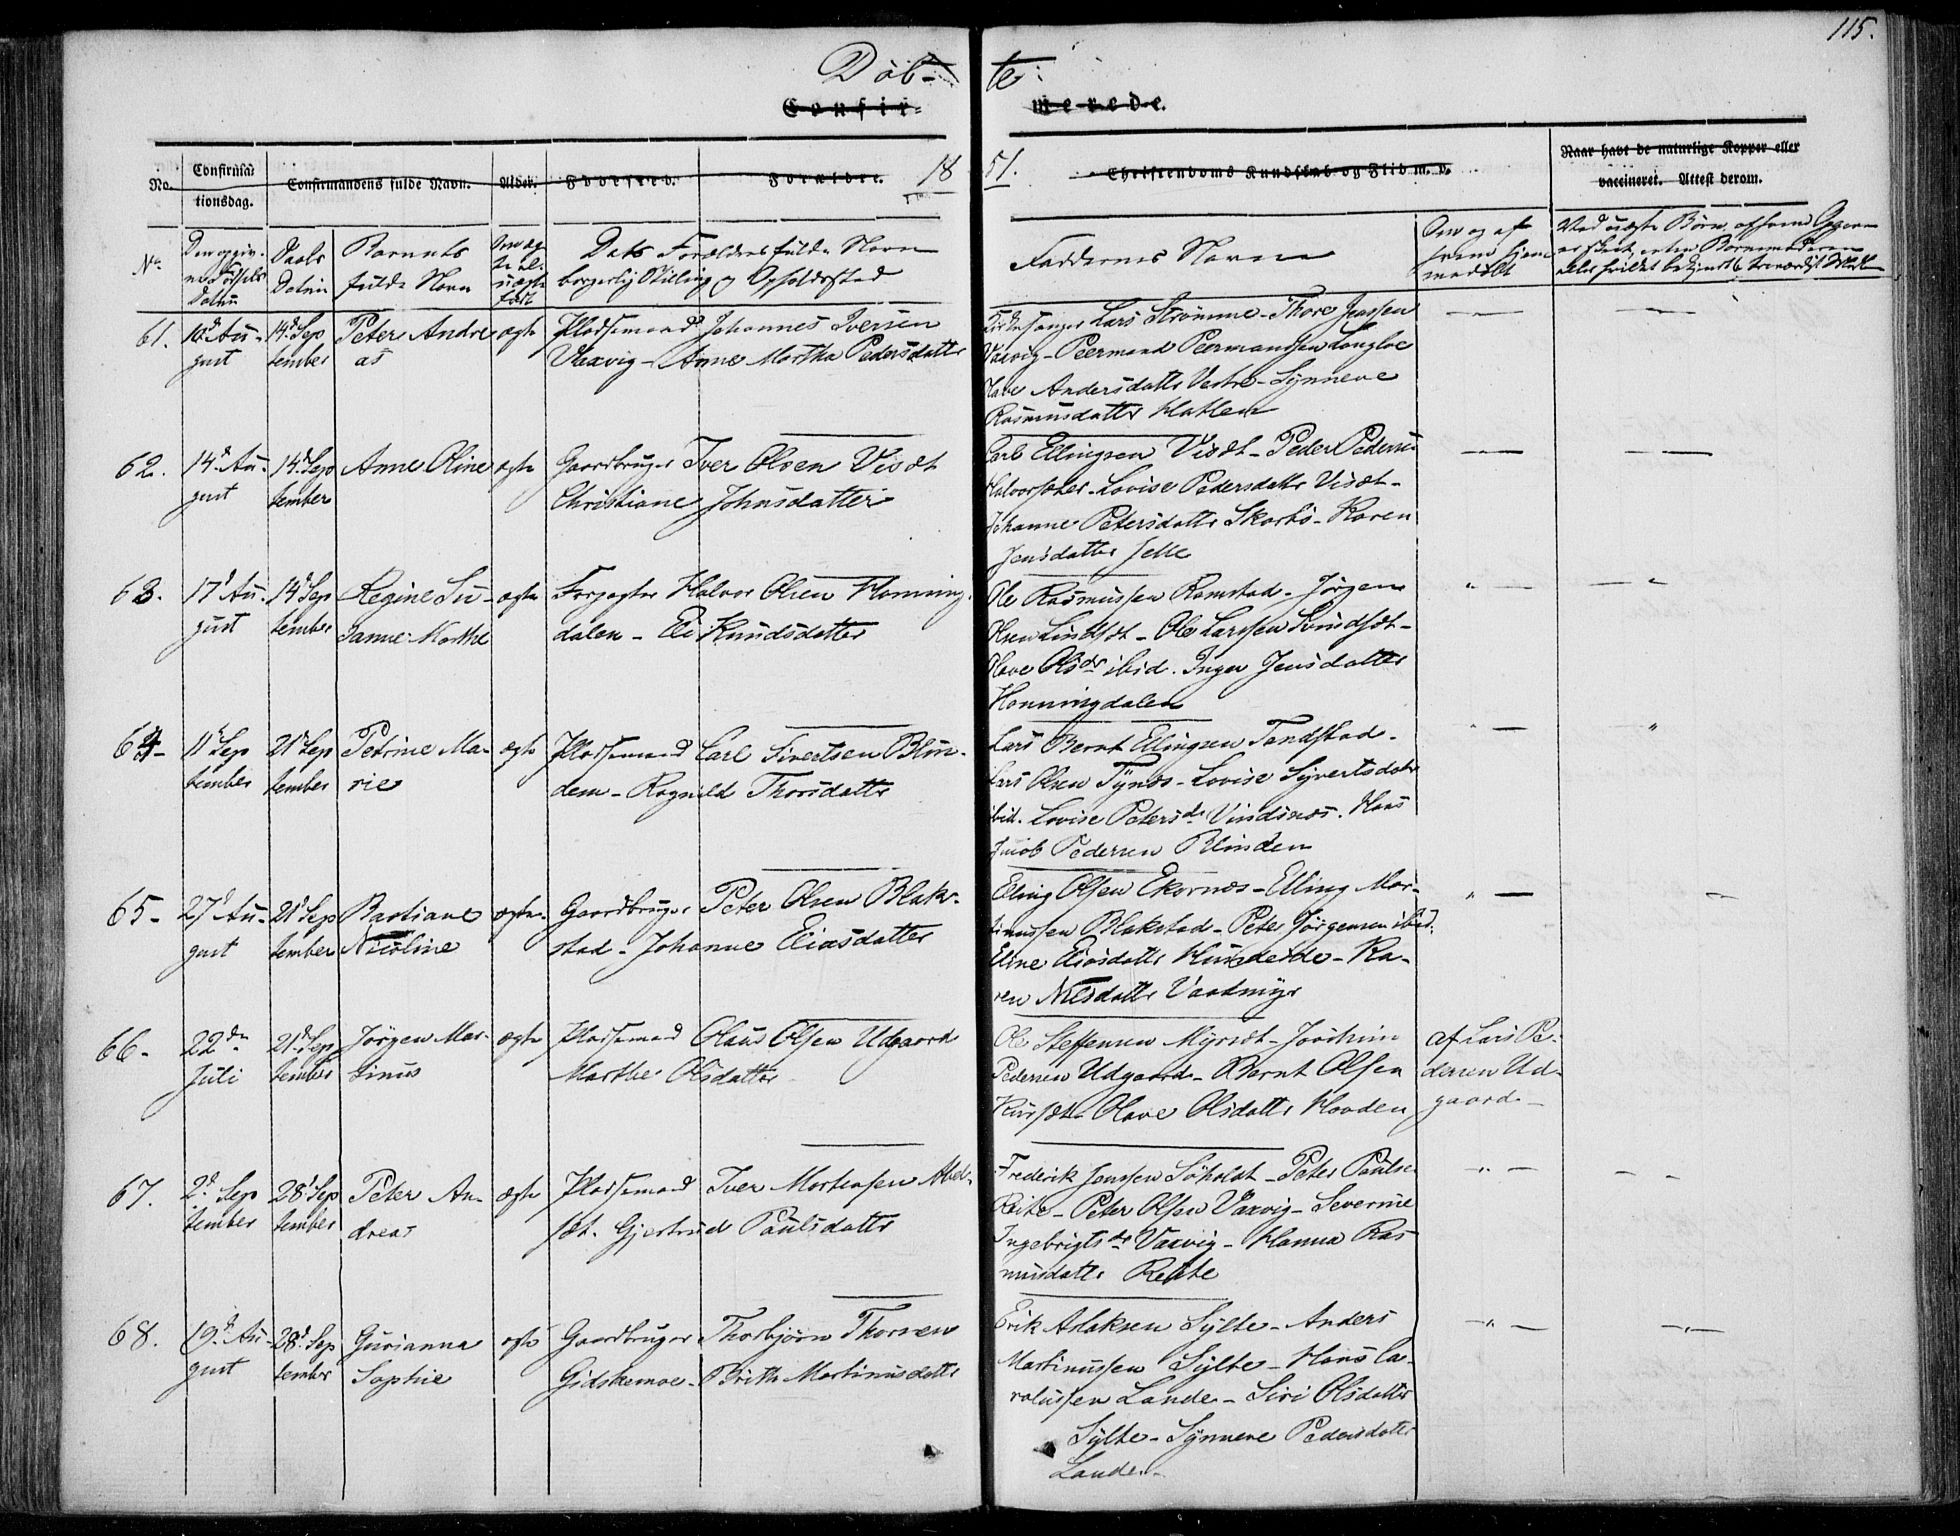 115.
Döb-
te:
Confir-
merede.
No.
Confirma-
tionsdag.
Confirmandens fulde Navn.
Alder.
Fødested.
Forældre.
18
51.
Christendoms Kundskab og Flid m. v.
Naar havt de naturlige Kopper eller
vaccineret. Attest derom.
No
Den opgiv-
ne Födsels
Datum
Daabs
Datum
Barnets
fulde Navn
Om æg-
te el.
uægte
födt
Dets Forældres fulde Navn
borgerlig Stilling og Opholdssted
Faddernes Navne
Om og af
hvem hjem-
medöbt
Ved uægte Börn, af hvem Opgaven
61. 10d Au-
gust
14d Sep
tember
Peter Andre
as
ægte
Pladsemand Johannes Iversen
Vaxvig - Anne Martha Pedersdatter
Kirkesanger Lars Strømme - Thore Jenssen
Vaxvig - Peermand Peermandsen Langloe
Andersdatter Vestre - Synneve
Rasmusdatter Hatlen
62. 14d Au-
gust
14d Sep
tember
Anne Oline
ægte
Gaardbruger Iver Olsen Visæt
Christiane Johnsdatter
Carl Ellingsen Visæt - Peder Pedersen
Halvorsæter - Lovise Pedersdatter Visæt -
Johanne Petersdatter Skorbö - Karen
Jensdatter Jelle
63. 17d Au-
gust
14d Sep
tember
Regine Su-
sanne Marthe
ægte
Forpagter Halvor Olsen Honning-
dalen - Eli Knudsdatter
Ole Rasmussen Ramstad - Jörgen
Olsen Lindsæt - Ole Larssen Svindsæt -
Olave Olsdr ibid. Inger Jensdatter
Honningdalen
64- 11d Sep
tember
21d Sep
tember
Petrine Ma-
rie
ægte
Pladsemand Carl Sivertsen Blin-
dem - Ragnild Thorsdatter
Lars Bernt Ellingsen Tandstad -
Lars Olsen Tynes - Lovise Syvertsdatter
ibid. Lovise Petersdr Vindsnes. Hans
Jacob Pedersen Blinden
65- 27d Au-
gust
21d Sep
tember
Bastiane
Nicoline
ægte
Gaardbruger Peter Olsen Blak-
stad - Johanne Eliasdatter
Elling Olsen Ekornes - Elling Mar-
tinussen Blakstad - Peter Jörgensen ibid.
Eline Eliasdatter Hundeide - Ka-
ren Nilsdatter Vaatmyr
66- 22de
Juli
21d Sep
tember
Jörgen Mar-
tinus
ægte
Pladsemand Olaus Olsen Udgaard
Marthe Olsdatter
Ole Steffensen Myrsæt - Joachim
Pedersen Udgaard - Bernt Olsen
Kursæt - Olave Olsdatter Hovden
af Lars Pe-
dersen Ud-
gaard -
67. 2d Sep
tember
28d Sep
tember
Peter An-
dreas
ægte
Pladsemand Iver Mortensen Abel-
sæt. Gjertrud Paulsdatter
Frederik Jenssen Söholdt - Peter Paulsen
Reite - Peter Olsen Vaxvig - Severine
Ingebrigtsdr Vaxvig - Hanna Ras-
musdatter Reite
68. 19d Au-
gust
28d Sep
tember
Gurianna
Sophie
ægte
Gaardbruger Thorbjörn Thorsen
Gidskemoe - Brith Martinusdatter
Erik Aslaksen Sylte - Anders
Martinussen Sylte - Hans Ca-
rolussen Lande - Siri Olsdatter
Sylte - Synneve Pedersdatter
Lande -